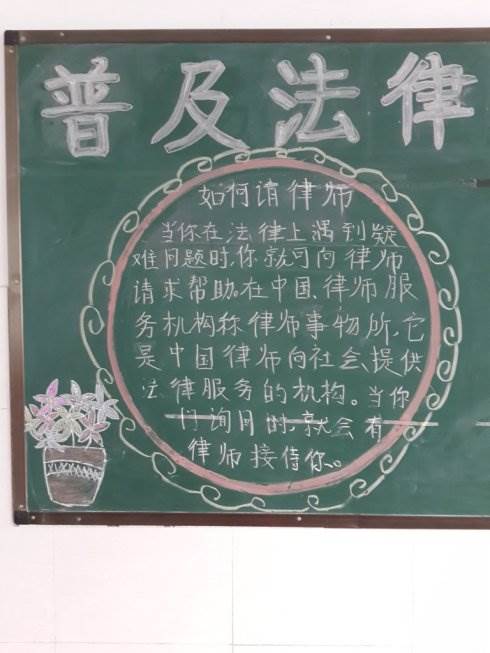 普及法律
如何请律师
当你在法律上遇到疑
难问题时,你就可向律师
请求帮助。在中国,律师服
务机构称律师事物所,它
是中国律师向社会提供
法律服务的机构。当你
们询问时,就会有
律师接待你。